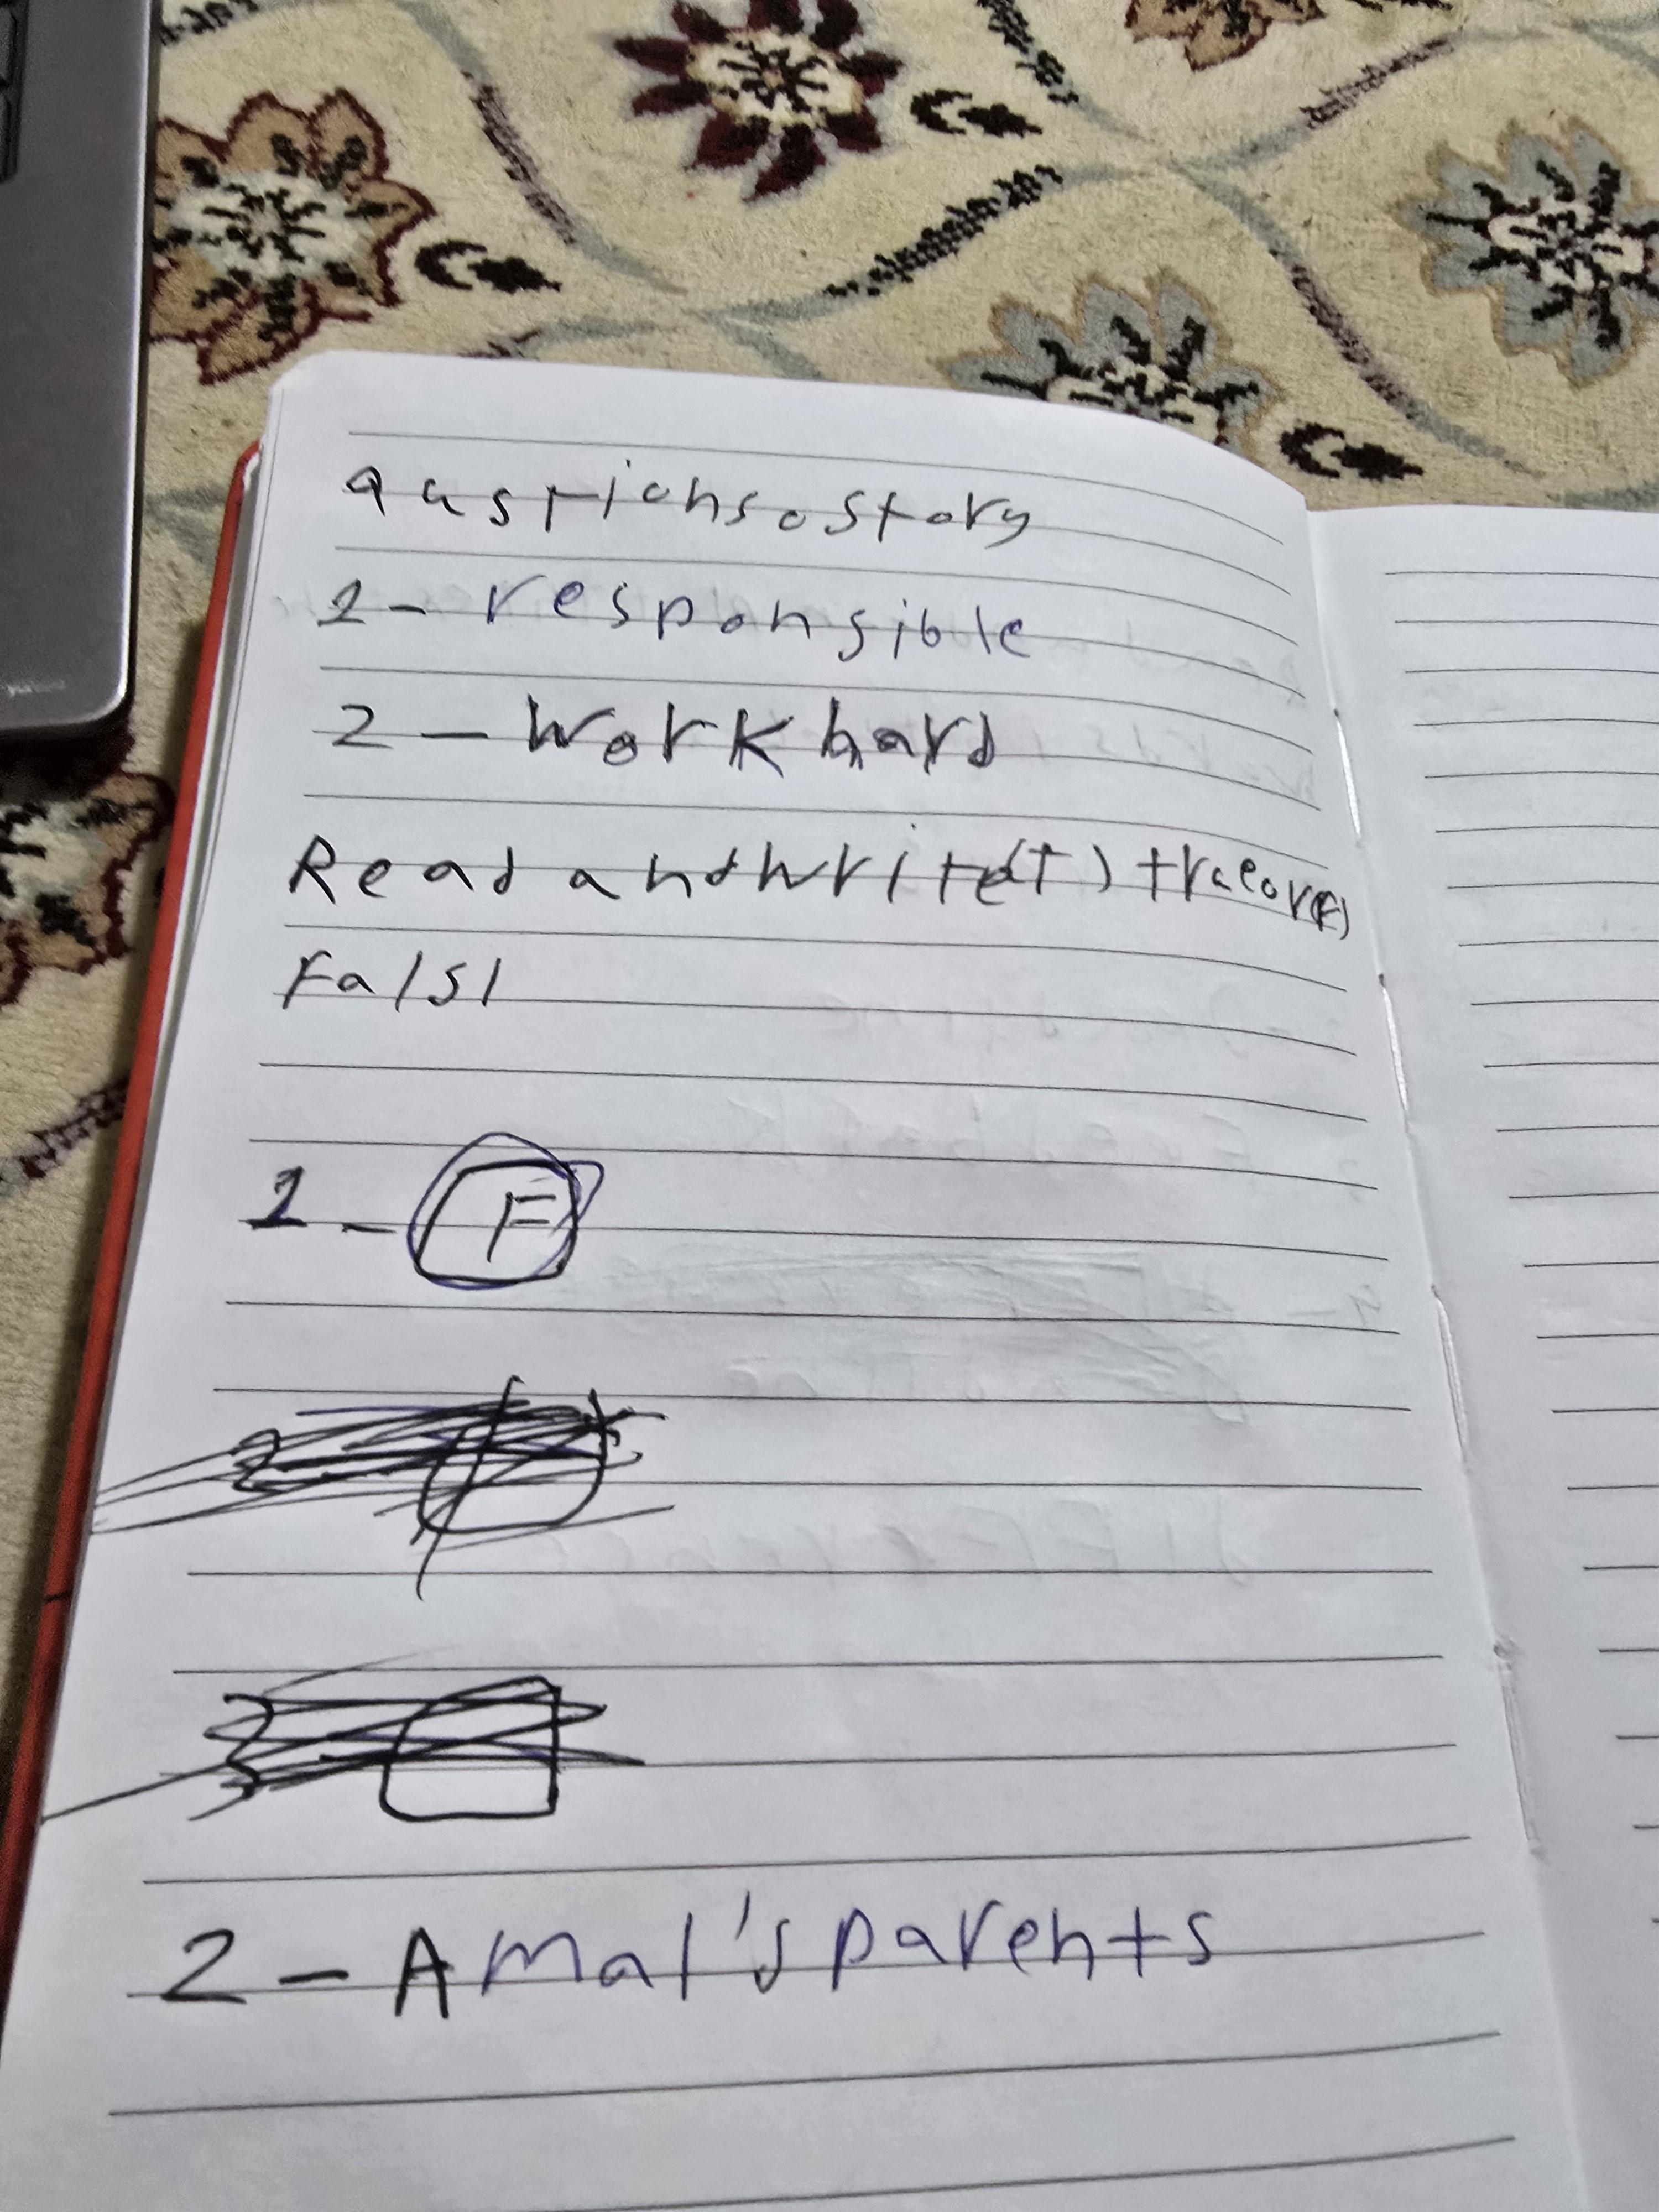 qustions o story
1- responsible
2- work hard
Read and write (T) true or (F)
Falsl
1- F
2- Amal's parents